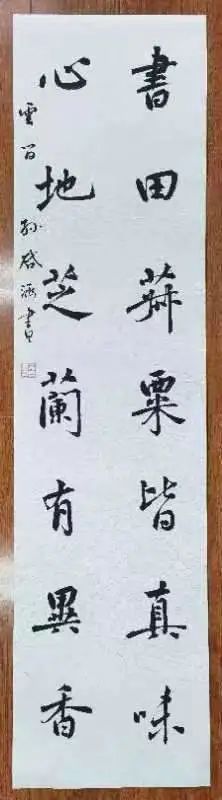 書田菽粟皆真味
心地芝蘭有異香
雲
孫啓涵書